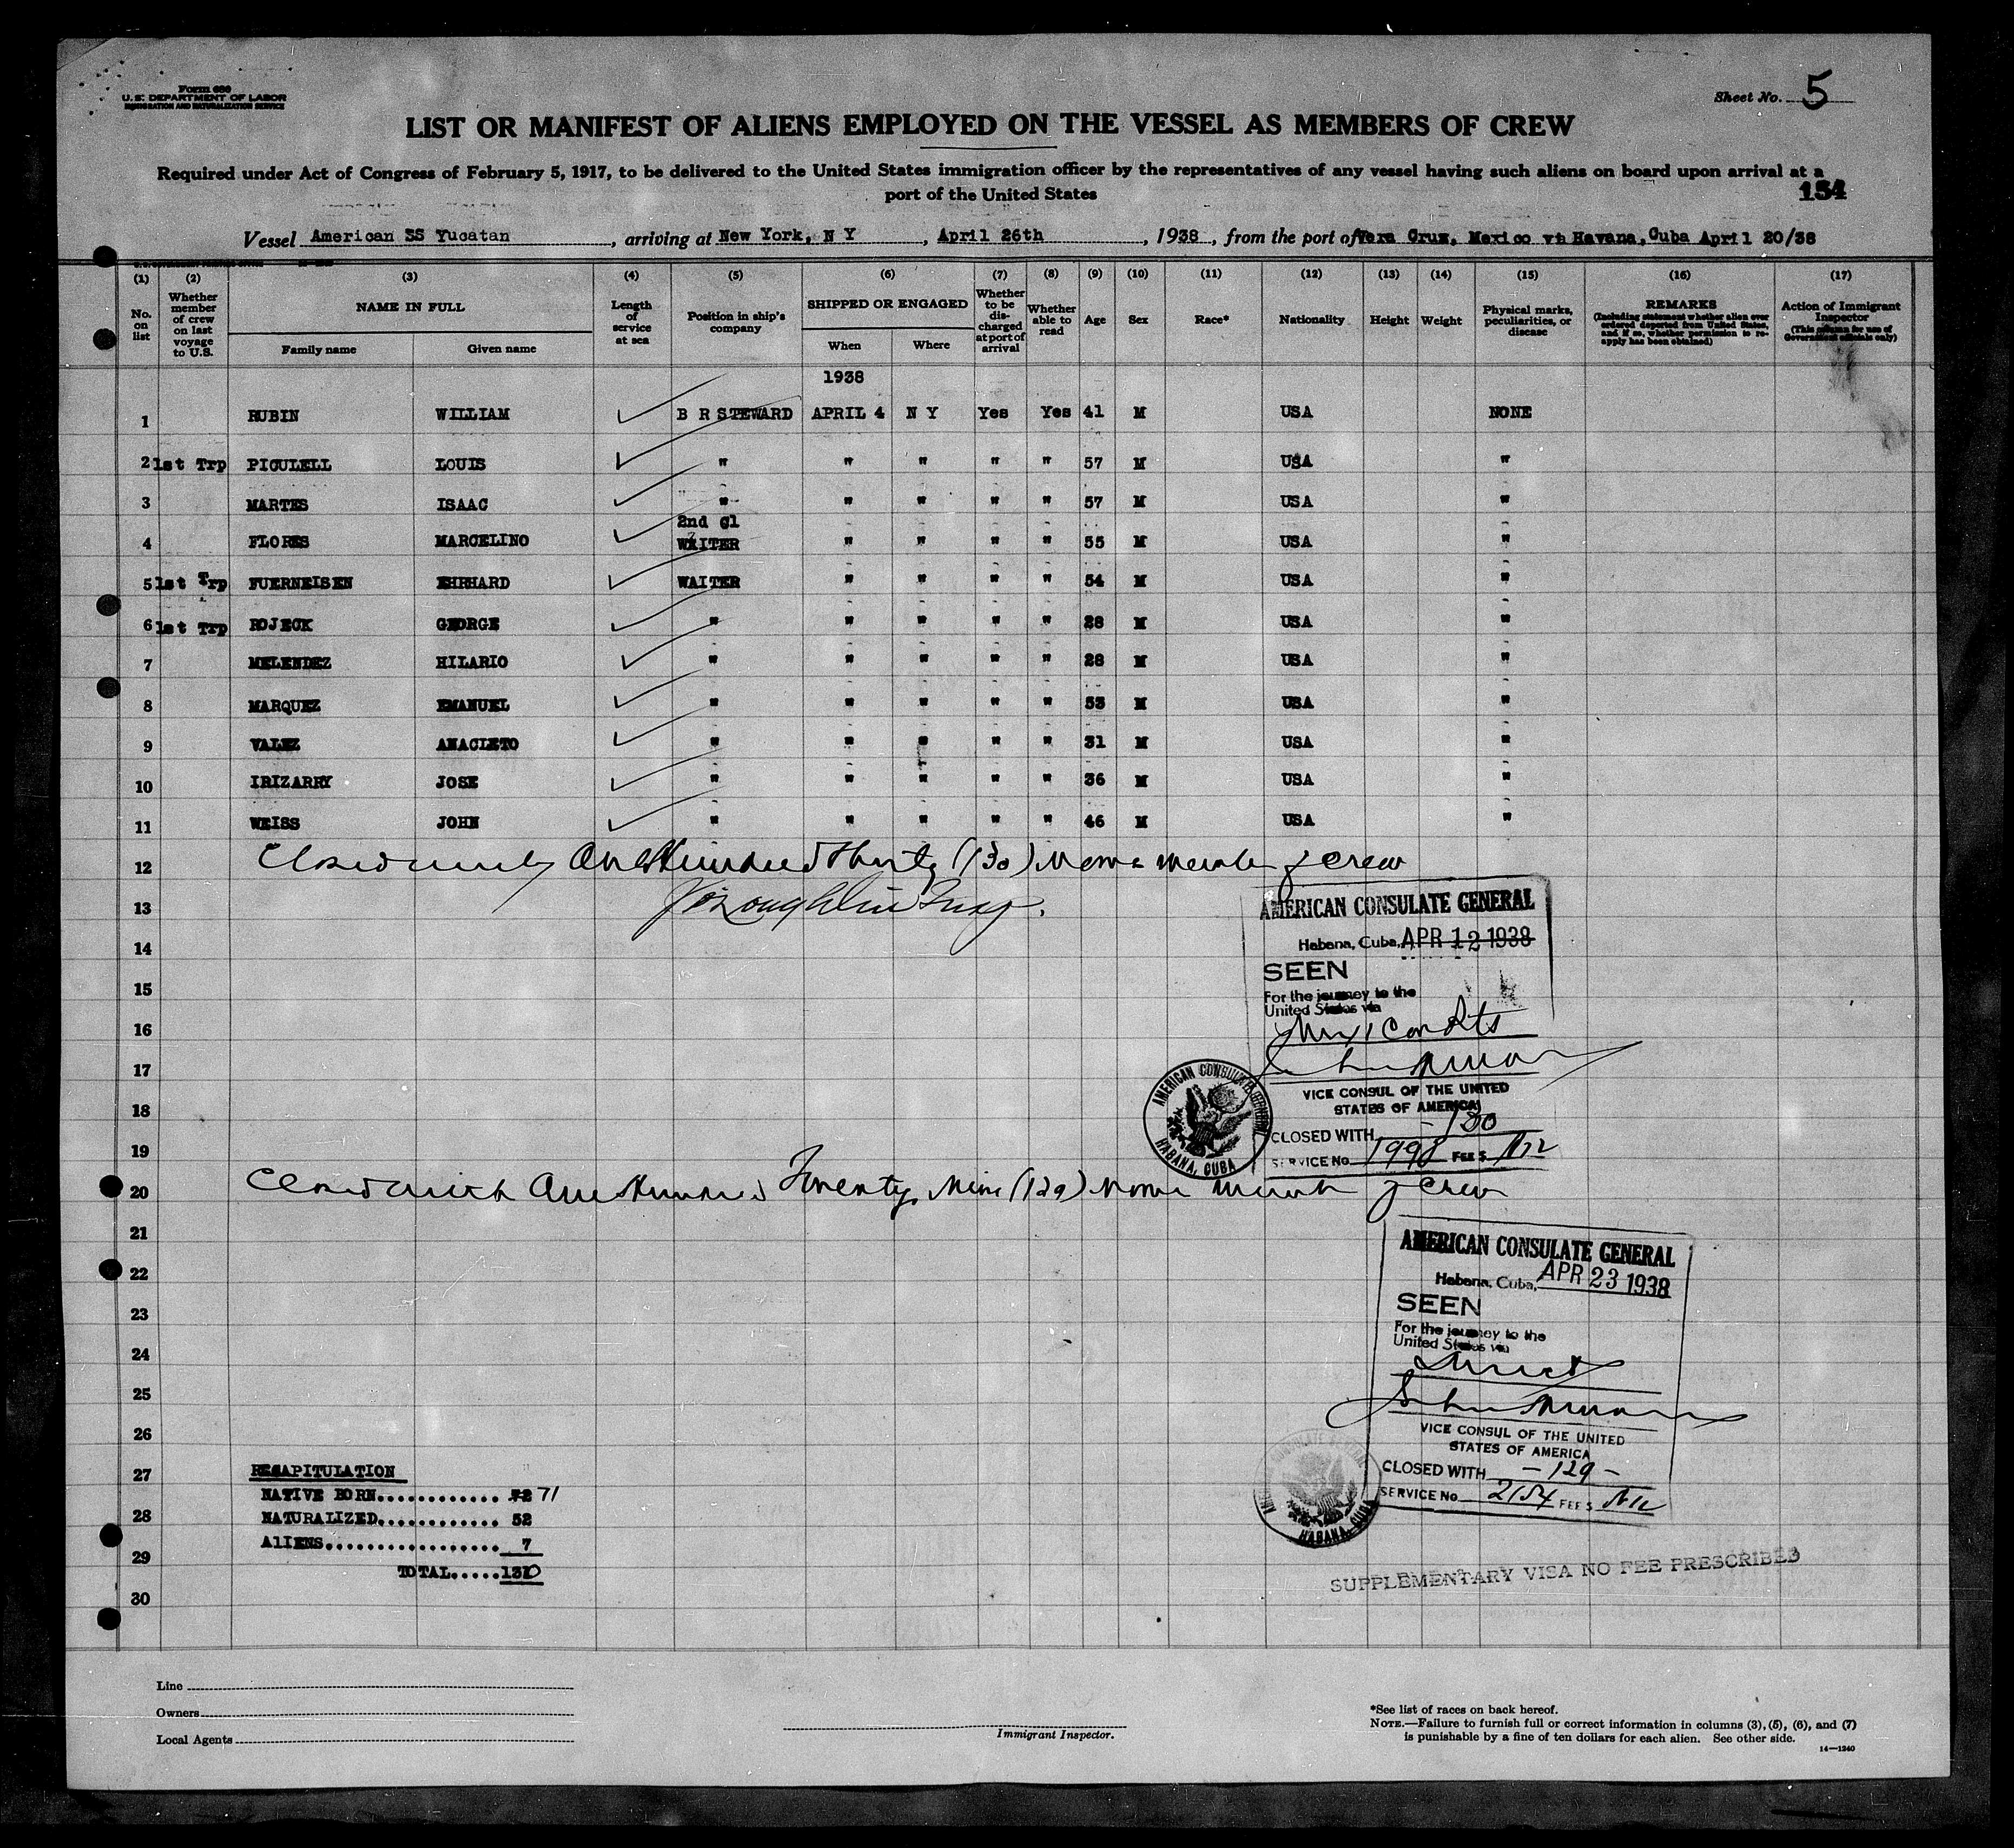 Form 680
U. S. DEPARTMENT OF LABOR
IMMIGRATION AND NATURALIZATION SERVICE
Sheet No. 5
LIST OR MANIFEST OF ALIENS EMPLOYED ON THE VESSEL AS MEMBERS OF CREW
Required under Act of Congress of February 5, 1917, to be delivered to the United States immigration officer by the representatives of any vessel having such aliens on board upon arrival at a
port of the United States
134
Vessel American SS Yucatan, arriving at New York, N Y, April 26th, 1938, from the port of Vera Cruz, Mexico via Havana, Cuba April 20/38
(1) (2) (3) (4) (5) (6) (7) (8) (9) (10) (11) (12) (13) (14) (15) (16) (17)
No. on list
Whether member of crew on last voyage to U.S.
NAME IN FULL
Family name Given name
Length of service at sea
Position in ship's company
SHIPPED OR ENGAGED
When Where
Whether to be discharged at port of arrival
Whether able to read
Age
Sex
Race*
Nationality
Height
Weight
Physical marks, peculiarities, or disease
REMARKS
(Including statement whether alien ever ordered deported from United States, and if so, whether permission to re-apply has been obtained)
Action of Immigrant Inspector
(This column for use of Government officials only)
1938
1 RUBIN WILLIAM B R STEWARD APRIL 4 N Y Yes Yes 41 M USA NONE
2 1st Trp PICULELL LOUIS " " " " " 57 M USA "
3 MARTES ISAAC " " " " " 57 M USA "
2nd Cl
4 FLORES MARCELINO WAITER " " " " 55 M USA "
5 1st Trp FUERNEISEN EHRHARD WAITER " " " " 54 M USA "
6 1st Trp ROJECK GEORGE " " " " " 28 M USA "
7 MELENDEZ HILARIO " " " " " 28 M USA "
8 MARQUEZ EMANUEL " " " " " 53 M USA "
9 VALEZ ANACLETO " " " " " 31 M USA "
10 IRIZARRY JOSE " " " " " 36 M USA "
11 WEISS JOHN " " " " " 46 M USA "
12 One Hundred Thirty (130) crew
13
AMERICAN CONSULATE GENERAL
14
Habana, Cuba, APR 12 1938
SEEN
15
For the journey to the
United States via
16
Mexican Pts
17
VICE CONSUL OF THE UNITED
18
STATES OF AMERICA
CLOSED WITH - 130
19
SERVICE No. 1998 FEE $ Nil
AMERICAN CONSULATE GENERAL
HABANA, CUBA
20 Closed with One Hundred Twenty Nine (129) crew
21
AMERICAN CONSULATE GENERAL
22
Habana, Cuba, APR 23 1938
SEEN
23
For the journey to the
United States via
24
Direct
25
26
VICE CONSUL OF THE UNITED
STATES OF AMERICA
CLOSED WITH - 129 -
SERVICE No. 2154 FEE $ Nil
HABANA, CUBA
27 RECAPITULATION
NATIVE BORN............. 72 71
28 NATURALIZED............ 52
ALIENS.................. 7
29
TOTAL.....130
30
SUPPLEMENTARY VISA NO FEE PRESCRIBED
Line
Owners
Local Agents
Immigrant Inspector.
*See list of races on back hereof.
NOTE.—Failure to furnish full or correct information in columns (3), (5), (6), and (7)
is punishable by a fine of ten dollars for each alien. See other side.
14—1240